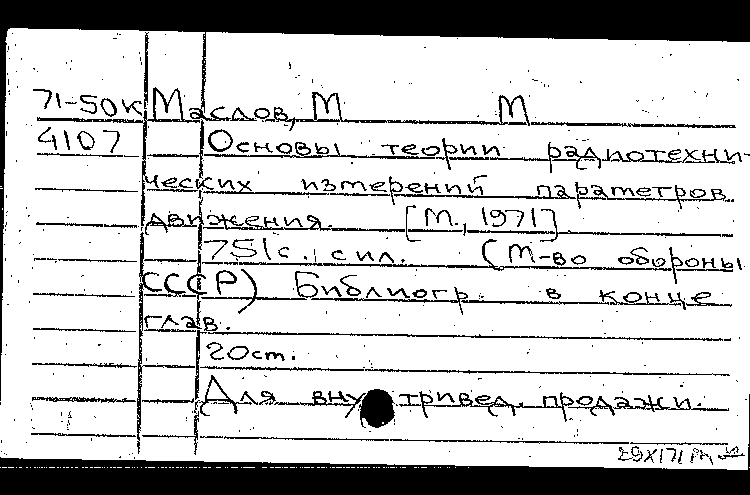 71-50к Маслов, М М
4107 Основы теории радиотехни-
ческих измерений параметров
движения. [М., 1971]
751с., с ил. (М-во обороны
СССР) Библиогр. в конце
глав.
20cm.
Для внутривед. продажи.